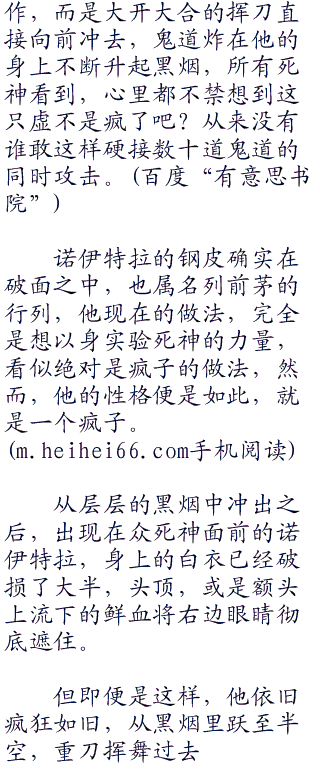 作，而是大开大合的挥刀直
接向前冲去，鬼道炸在他的
身上不断升起黑烟，所有死
神看到，心里都不禁想到这
只虚不是疯了吧？从来没有
谁敢这样硬接数十道鬼道的
同时攻击。(百度“有意思书
院”)
诺伊特拉的钢皮确实在
破面之中，也属名列前茅的
行列，他现在的做法，完全
是想以身实验死神的力量，
看似绝对是疯子的做法，然
而，他的性格便是如此，就
是一个疯子。
(m.heihei66.com手机阅读)
从层层的黑烟中冲出之
后，出现在众死神面前的诺
伊特拉，身上的白衣已经破
损了大半，头顶，或是额头
上流下的鲜血将右边眼睛彻
底遮住。
但即便是这样，他依旧
疯狂如旧，从黑烟里跃至半
空，重刀挥舞过去